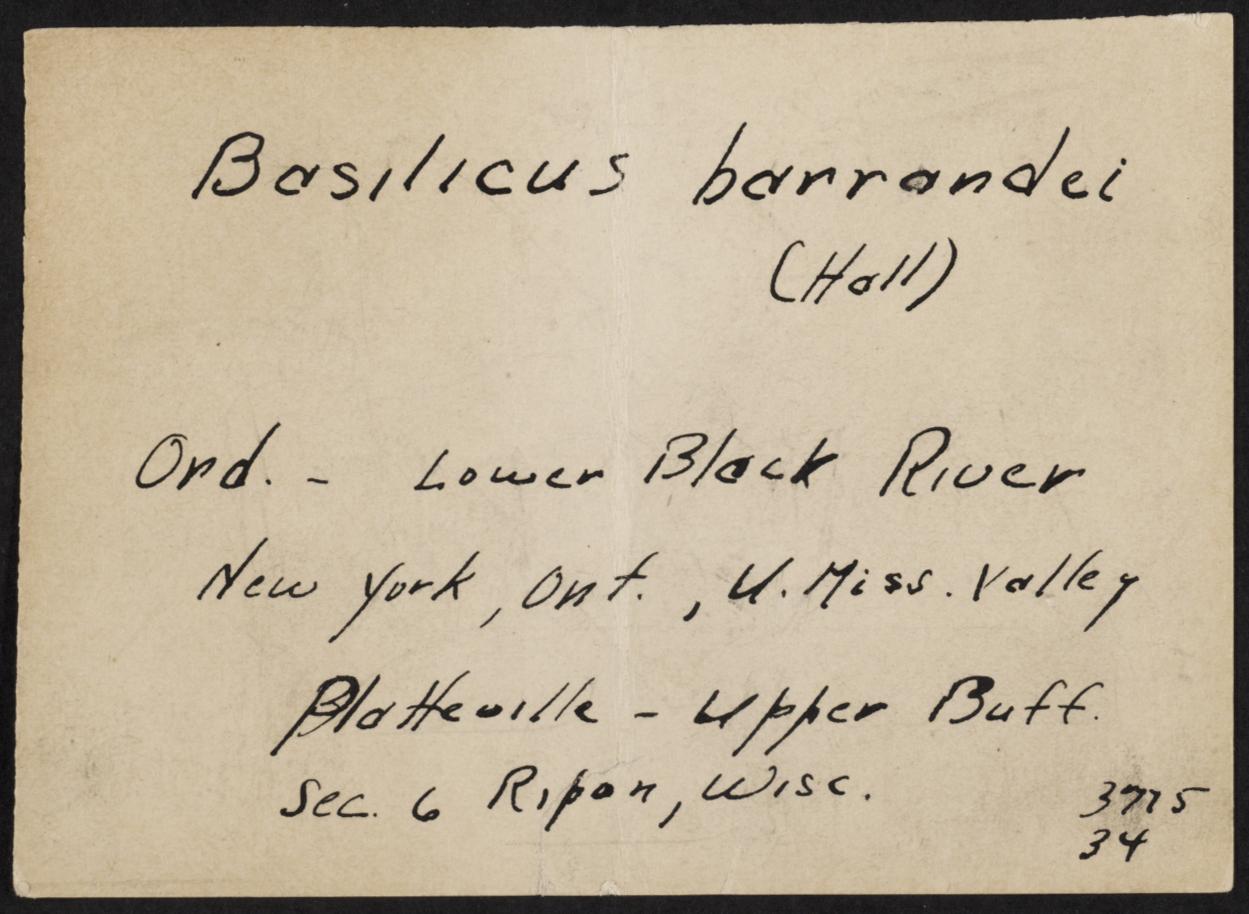 Basilicus barrandei
(Hall)
Ord. - Lower Black River
New York, Ont., U. Miss. Valley
Platteville - Upper Buff.
Sec. 6 Ripon, Wisc.
3775
34